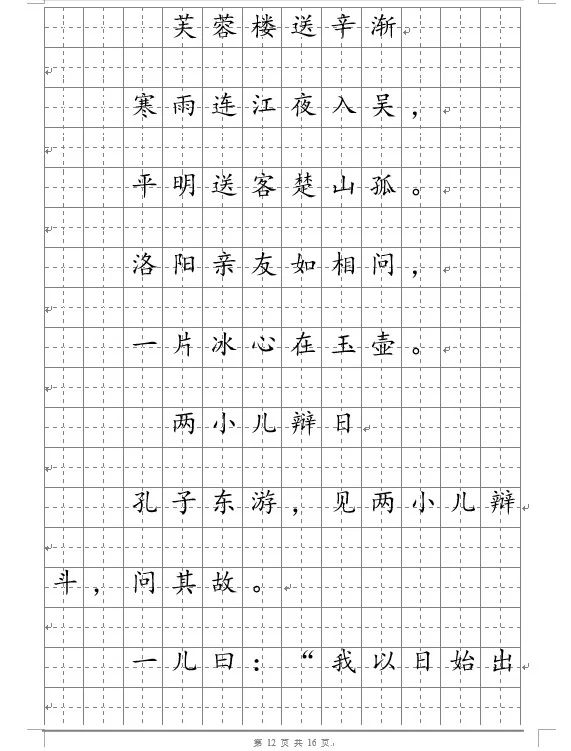 芙蓉楼送辛渐
寒雨连江夜入吴，
平明送客楚山孤。
洛阳亲友如相问，
一片冰心在玉壶。
两小儿辩日
孔子东游，见两小儿辩
斗，问其故。
一儿曰：“我以日始出
第 12 页 共 16 页